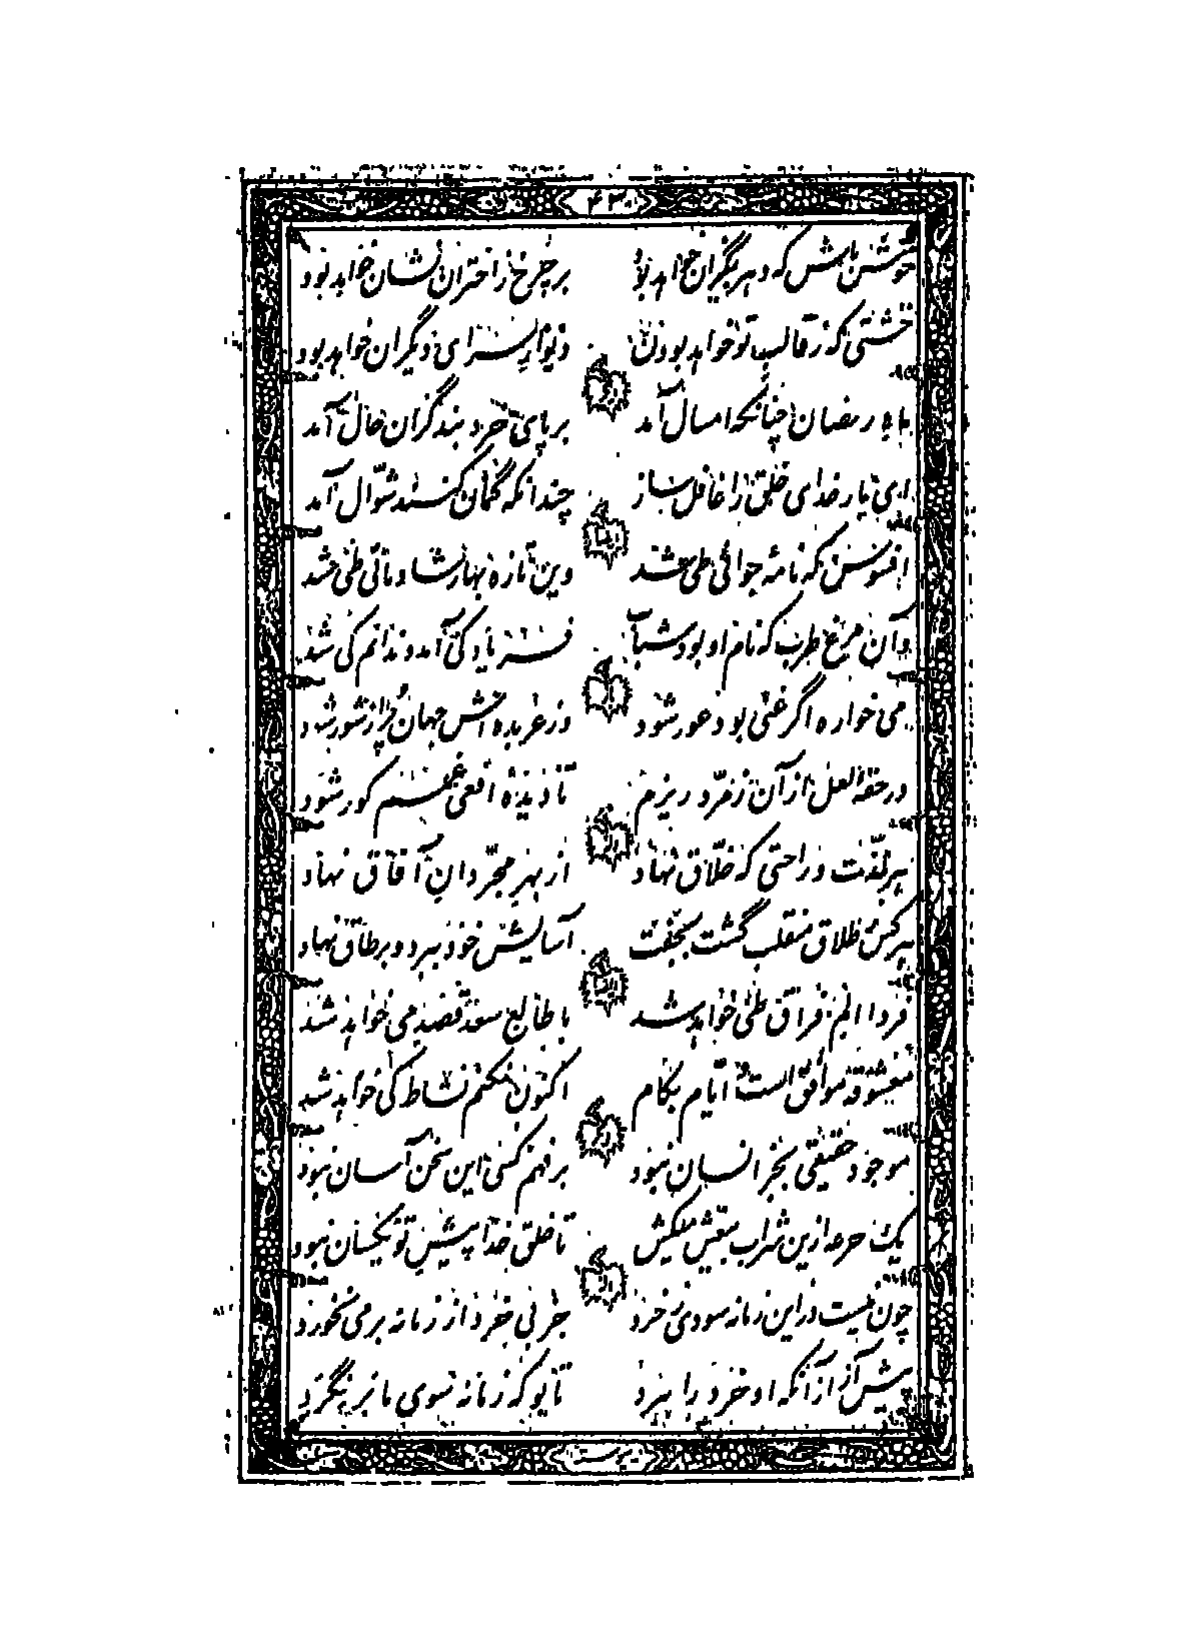 ۴۳
خوش باش که دهر بیکران خواهد بود بر چرخ ز اختران نشان خواهد بود
خشتی که ز قالب تو خواهد بودن دیوار سرای دیگران خواهد بود
ماه رمضان چنانکه امسال آمد بر پای خرد بند گران حال آمد
ای بار خدای خلق را غافل ساز چندانکه گمان کنند شوّال آمد
افسوس که نامه جوانی طی شد وین تازه بهار شادمانی طی شد
وآن مرغ طرب که نام او بود شباب فریاد کی آمد و ندانم کی شد
می خواره اگر غنی بود عور شود وز عربده اش جهان پر از شور شود
در حقه لعل از آن زمرّد ریزم تا دیده افعی غمم کور شود
هر لذّت و راحتی که خلّاق نهاد از بهر مجرّدان آفاق نهاد
هر کس ز طلاق منقلب گشت بجفت آسایش خود ببرد و بر طاق نهاد
فردا الم فراق طی خواهد شد با طالع سعد قصد می خواهد شد
معشوقه موافق است و ایّام بکام اکنون نکنم نشاط کی خواهد شد
موجود حقیقی بجز انسان نبود بر فهم کسی این سخن آسان نبود
یک جرعه ازین شراب بیغش میکش تا خلق خدا پیش تو یکسان نبود
چون نیست در این زمانه سودی ز خرد جز بی خرد از زمانه بر می نخورد
پیش آر از آنکه او خرد را ببرد تا بو که زمانه سوی ما بر نگرد